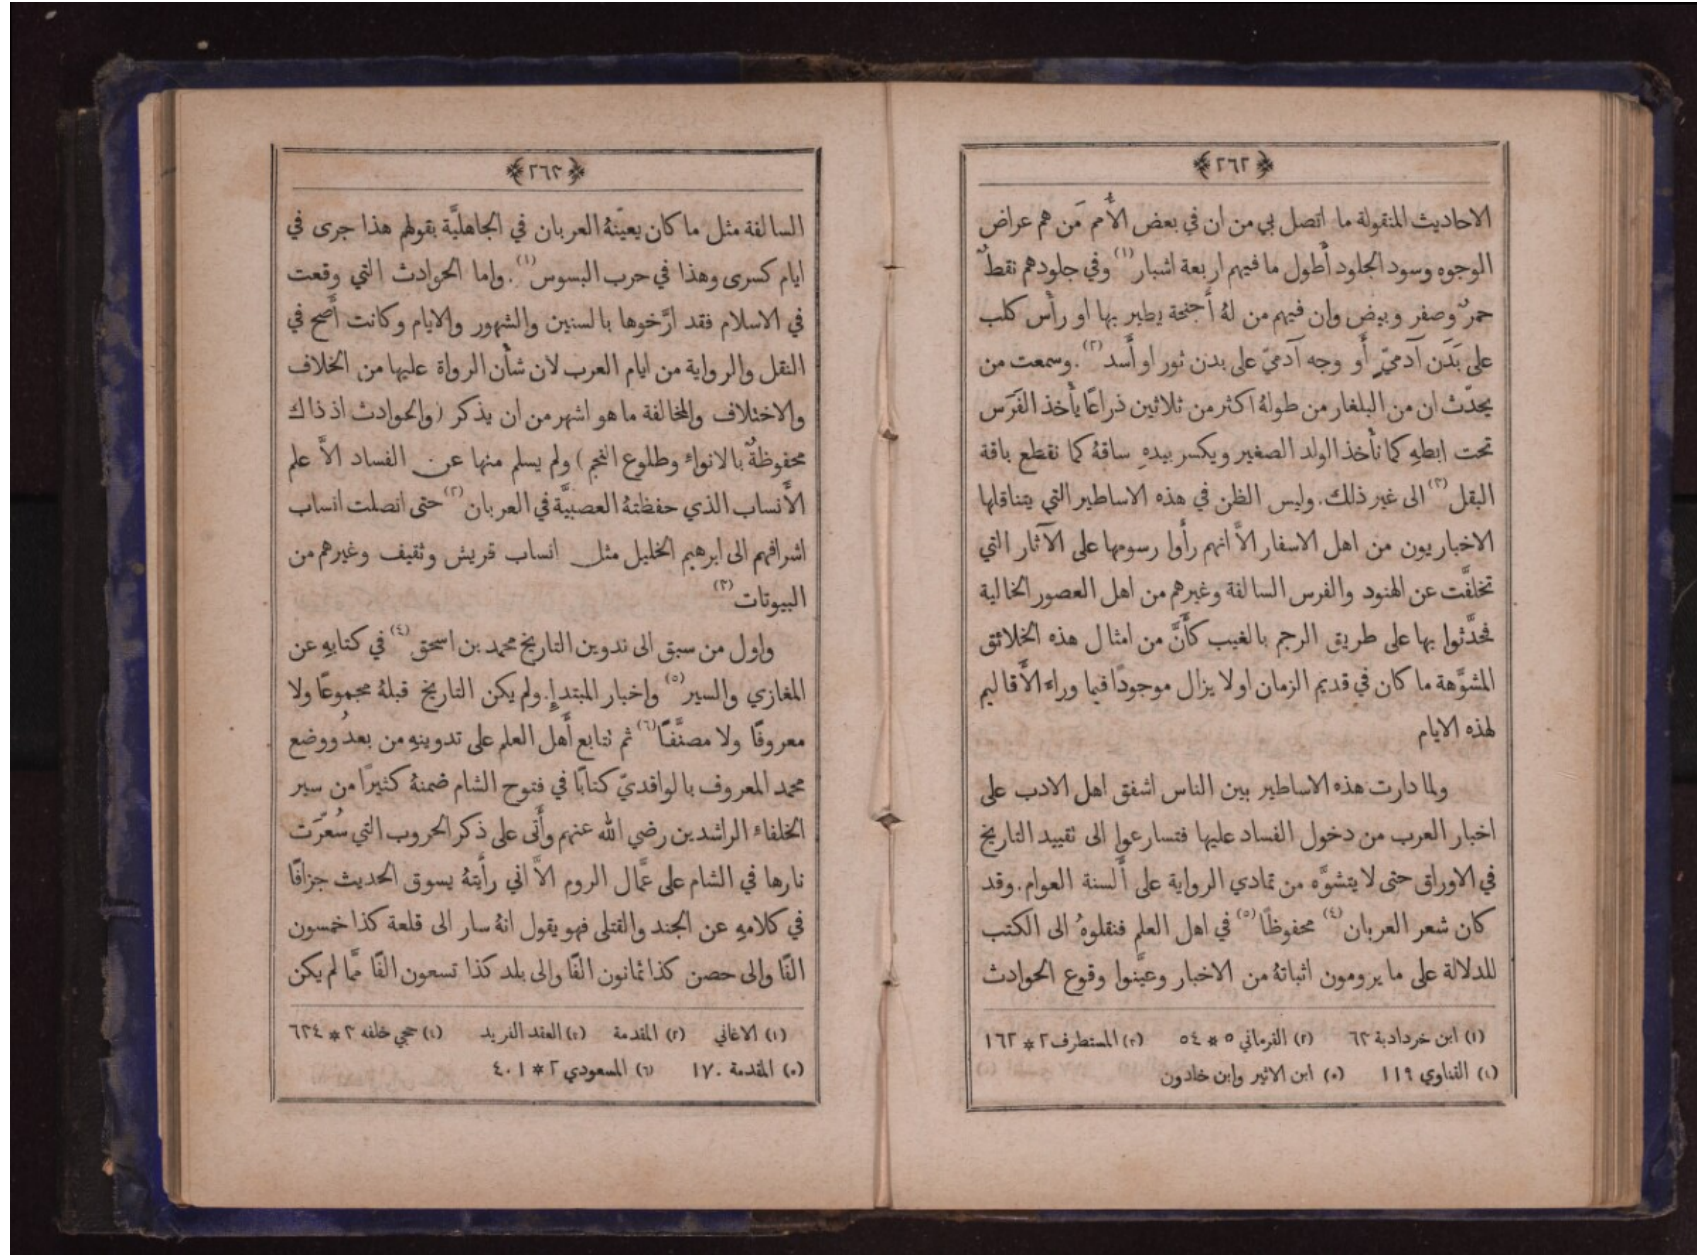 ﴿٢٦٢﴾
الاحاديث المنقولة ما اتصل بي من ان في بعض الأمم مَن هم عراض
الوجوه وسود الجلود أطول ما فيهم اربعة اشبار (١) وفي جلودهم نقطٌ
حمرٌ وصفر وبيض وان فيهم من لهُ أجنحة يطير بها او رأس كلب
على بَدَن آدميّ أَو وجه آدميّ على بدن ثور او أسد (٢). وسمعت من
يحدّث ان من البلغار من طولهُ اكثر من ثلاثين ذراعًا يأخذ الفَرَس
تحت ابطهِ كما نأخذ الولد الصغير ويكسر بيدهِ ساقهُ كما نقطع باقة
البقل (٣) الى غير ذلك. وليس الظن في هذه الاساطير التي يتناقلها
الاخباريون من اهل الاسفار الاَّ انهم رأوا رسومها على الآثار التي
تخلَّفت عن الهنود والفرس السالفة وغيرهم من اهل العصور الخالية
فحدَّثوا بها على طريق الرجم بالغيب كأَنَّ من امثال هذه الخلائق
المشوَّهة ما كان في قديم الزمان او لا يزال موجودًا فيما وراء الأقاليم
لهذه الايام
ولما دارت هذه الاساطير بين الناس اشفق اهل الادب على
اخبار العرب من دخول الفساد عليها فتسارعوا الى تقييد التاريخ
في الاوراق حتى لا يتشوَّه من تمادي الرواية على أَلسنة العوام. وقد
كان شعر العربان (٤) محفوظًا (٥) في اهل العلم فنقلوهُ الى الكتب
للدلالة على ما يرومون اثباتهُ من الاخبار وعيَّنوا وقوع الحوادث
(١) ابن خردادبة ٦٣ (٢) القرماني ٥ * ٥٤ (٣) المستطرف ٢ * ١٦٣
(٤) الفناوي ١١٩ (٥) ابن الاثير وابن خلدون
﴿٢٦٣﴾
السالفة مثل ما كان يعينهُ العربان في الجاهليَّة بقولهم هذا جرى في
ايام كسرى وهذا في حرب البسوس (١). واما الحوادث التي وقعت
في الاسلام فقد ارَّخوها بالسنين والشهور والايام وكانت أَصح في
النقل والرواية من ايام العرب لان شأن الرواة عليها من الخلاف
والاختلاف والمخالفة ما هو اشهر من ان يذكر (والحوادث اذ ذاك
محفوظةٌ بالانواء وطلوع النجم) ولم يسلم منها عن الفساد الاَّ علم
الأنساب الذي حفظتهُ العصبيَّة في العربان (٢) حتى اتصلت انساب
اشرافهم الى ابرهيم الخليل مثل انساب قريش وثقيف وغيرهم من
البيوتات (٣)
واول من سبق الى تدوين التاريخ محمد بن اسحق (٤) في كتابهِ عن
المغازي والسير (٥) واخبار المبتدإِ. ولم يكن التاريخ قبلهُ مجموعًا ولا
معروفًا ولا مصنَّفًا (٦) ثم نتابع أَهل العلم على تدوينهِ من بعدُ ووضع
محمد المعروف بالواقديّ كتابًا في فتوح الشام ضمنهُ كثيرًا من سير
الخلفاء الراشدين رضي الله عنهم وأَتى على ذكر الحروب التي سُعّرَت
نارها في الشام على عمَّال الروم الاَّ اني رأَيتهُ يسوق الحديث جزافًا
في كلامهِ عن الجند والقتلى فهو يقول انهُ سار الى قلعة كذا خمسون
الفًا والى حصن كذا ثمانون الفًا والى بلد كذا تسعون الفًا ممَّا لم يكن
(١) الاغاني (٢) المقدمة (٣) العقد الفريد (٤) حجي خلفه ٢ * ٦٣٤
(٥) المقدمة ١٧٠ (٦) المسعودي ٢ * ٤٠١